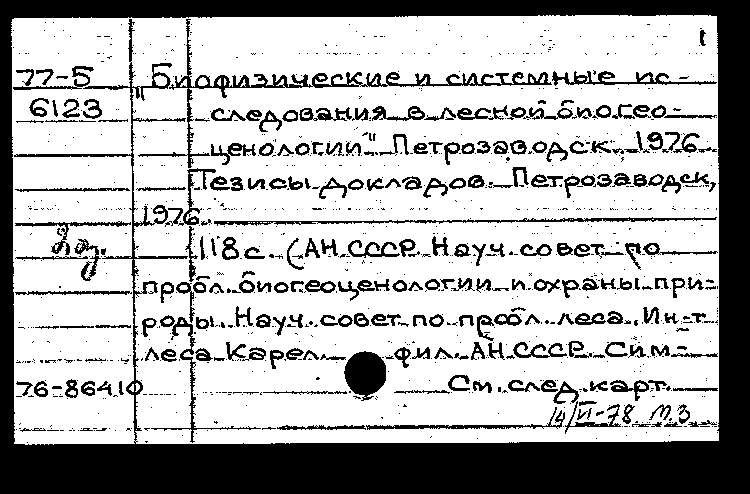 1
77-5 "Биофизические и системные ис-
6123 следования в лесной биогео-
ценологии" Петрозаводск, 1976
Тезисы докладов. Петрозаводск,
1976.
118 с. (АН СССР. Науч. совет по
пробл. биогеоценологии и охраны при-
роды. Науч. совет по пробл. леса. Ин-т
леса Карел. фил. АН СССР. Сим-
76-86410 См. след. карт.
14/VI-78 М.З